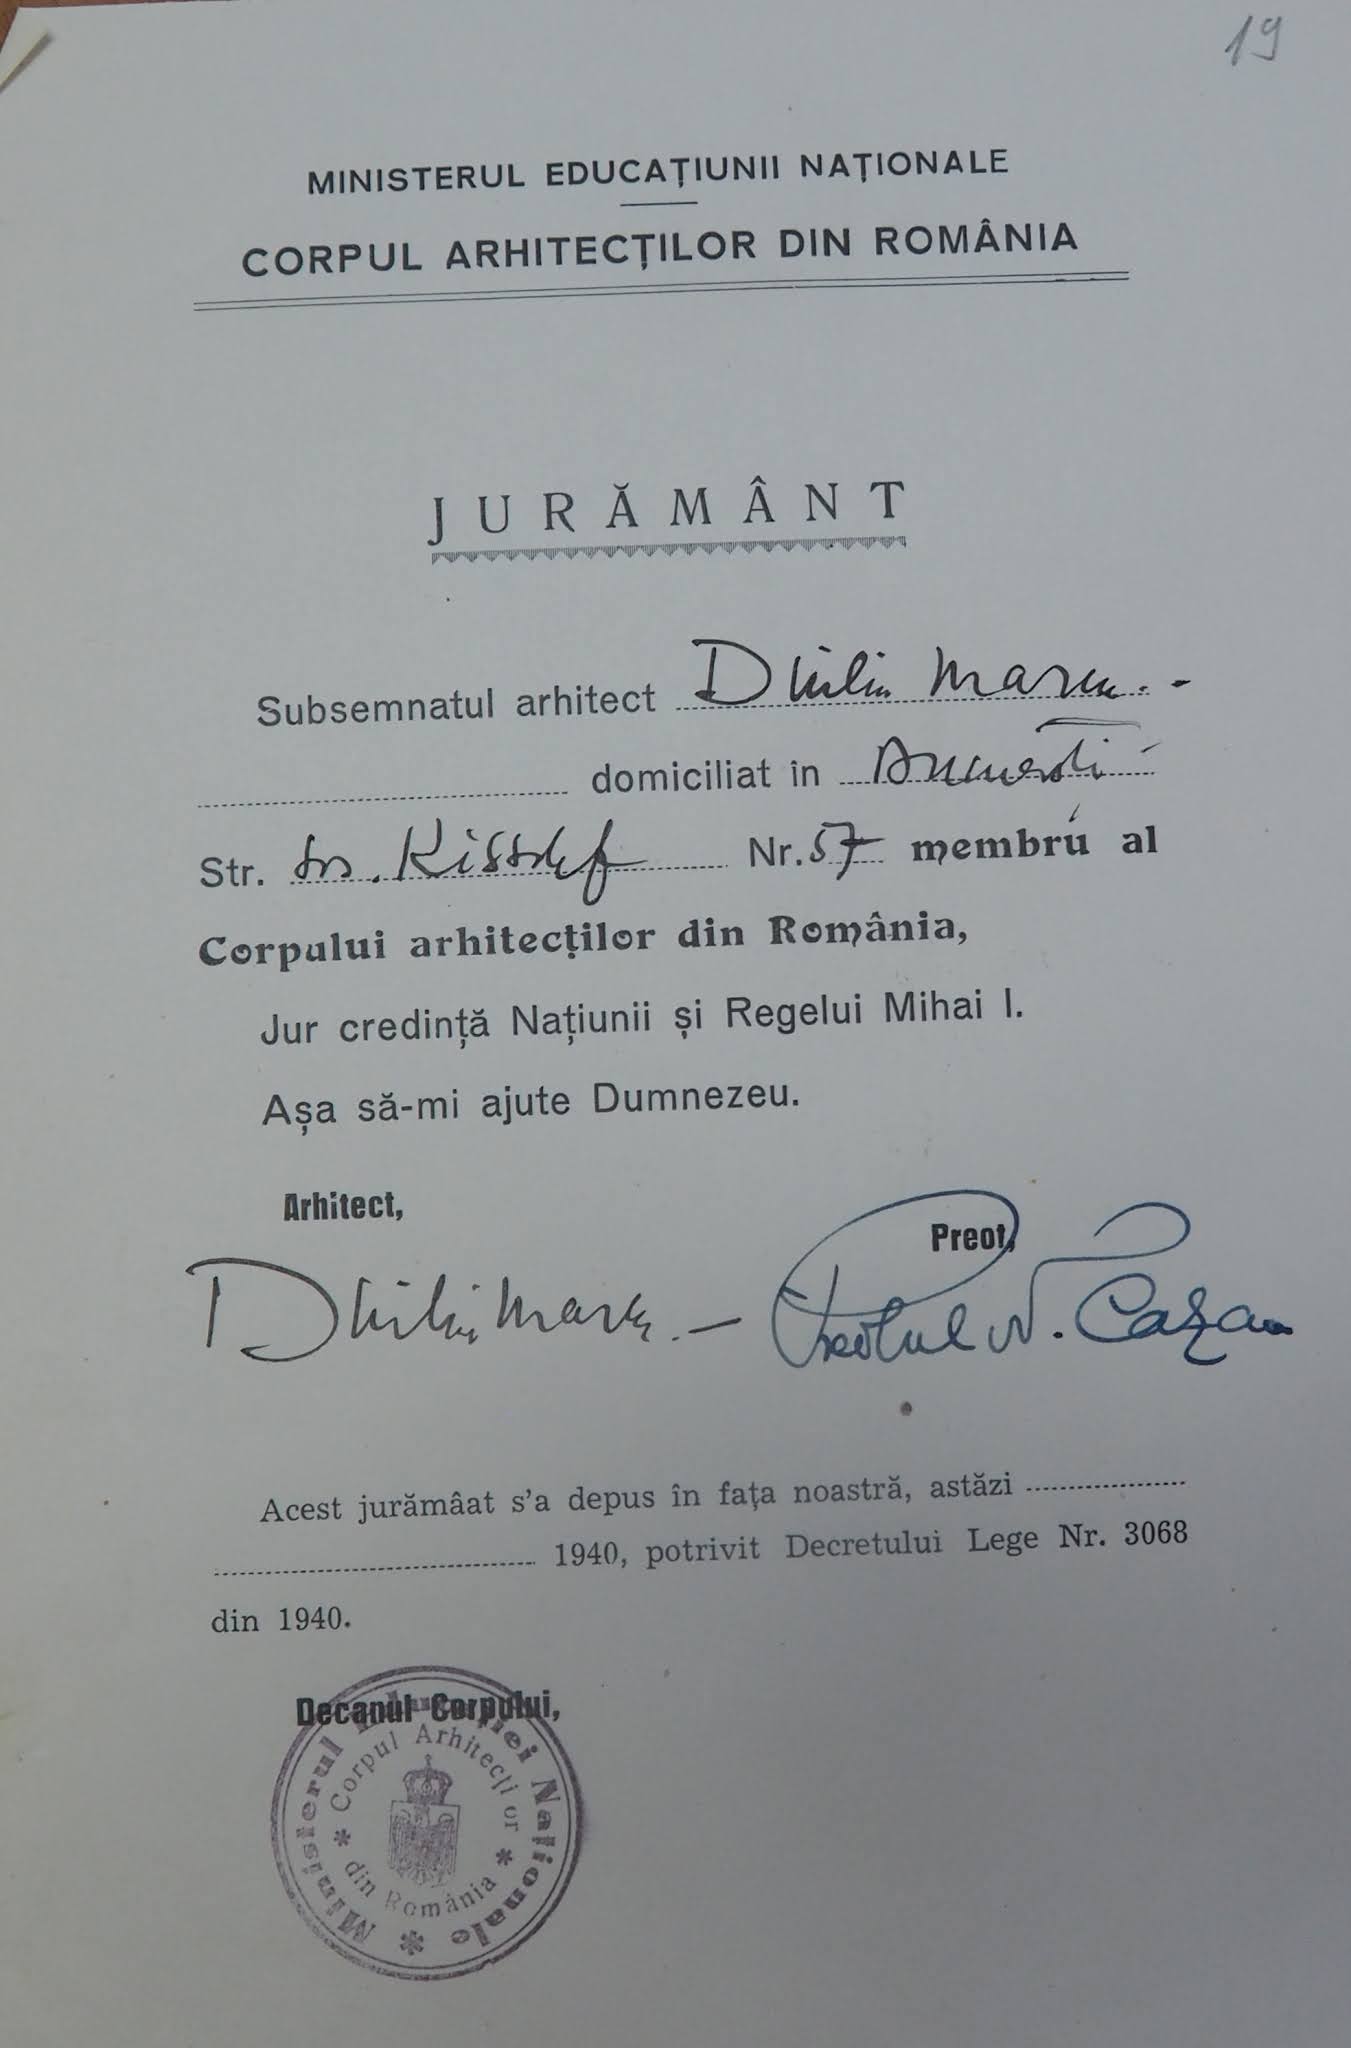 19
MINISTERUL EDUCAȚIUNII NAȚIONALE
CORPUL ARHITECȚILOR DIN ROMÂNIA
JURĂMÂNT
Subsemnatul arhitect Duiliu Marcu.-
domiciliat în București
Str. Kisselef Nr. 57 membru al
Corpului arhitecților din România,
Jur credință Națiunii și Regelui Mihai I.
Așa să-mi ajute Dumnezeu.
Arhitect,
Preot,
Duiliu Marcu.—
Preotul N. Cazan
Acest jurămâat s'a depus în fața noastră, astăzi
1940, potrivit Decretului Lege Nr. 3068
din 1940.
Decanul Corpului,
Ministerul Educației Naționale
Corpul Arhitecți or
din România